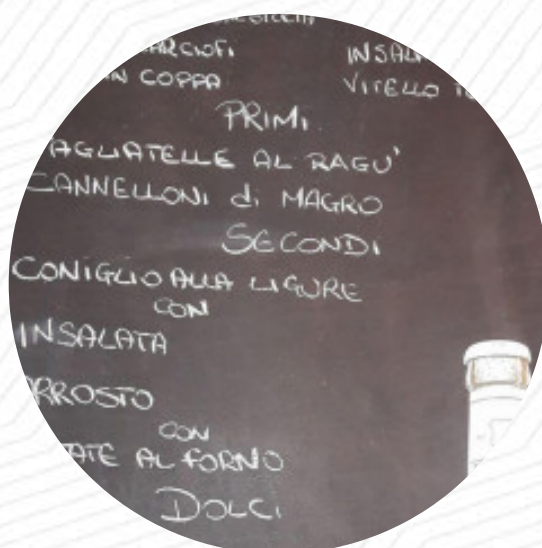 ARCIOFI INSALA
N COPPA VITELLO
PRIMI
AGLIATELLE AL RAGU'
CANNELLONI di MAGRO
SECONDI
CONIGLIO ALLA LIGURE
CON
INSALATA
RROSTO
CON
TATE AL FORNO
DOLCI